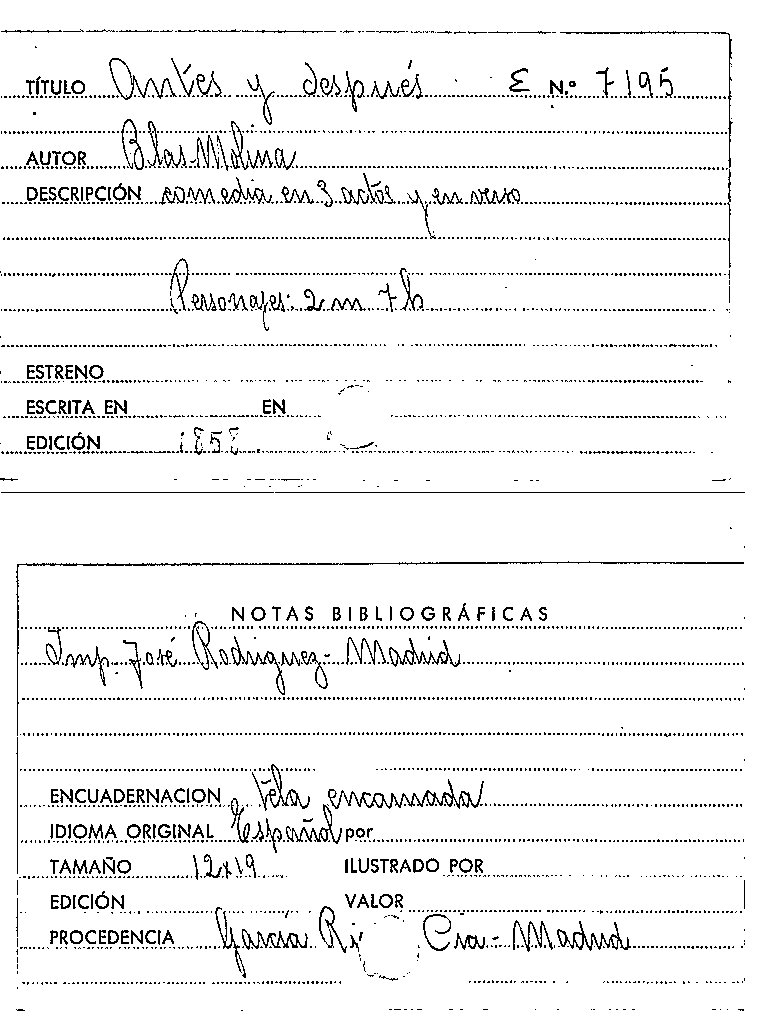 TÍTULO Antes y después E N.º 7195
AUTOR Blas Molina
DESCRIPCIÓN comedia en 3 actos y en verso
Personajes: 2 m 7 h
ESTRENO
ESCRITA EN EN
EDICIÓN 1858.
NOTAS BIBLIOGRÁFICAS
Imp. José Rodriguez - Madrid
ENCUADERNACION tela encarnada
IDIOMA ORIGINAL Español por
TAMAÑO 12x19 ILUSTRADO POR
EDICIÓN VALOR
PROCEDENCIA García Cia - Madrid